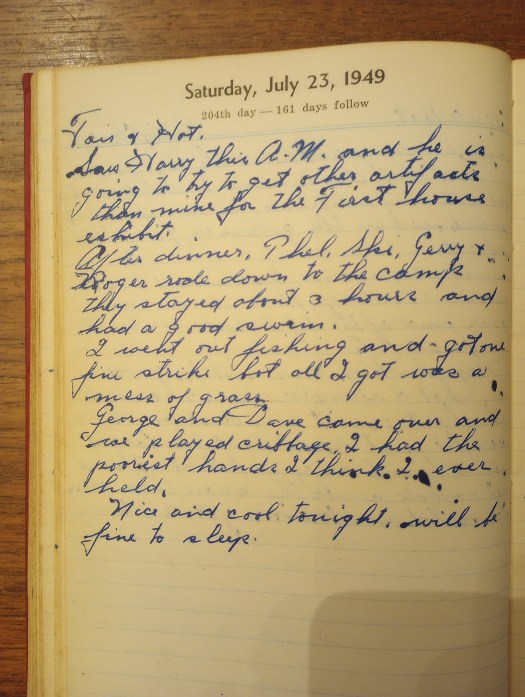 Saturday, July 23, 1949
204th day — 161 days follow
Fair & Hot.
Saw Harry this A.M. and he is
going to try to get other artifacts
than mine for the First house
exhibit.
After dinner, Phel, Gerry &
Roger rode down to the camp
they stayed about 3 hours and
had a good swim.
I went out fishing and got one
fine strike but all I got was a
mess of grass
George and Dave came over and
we played cribbage, I had the
pooriest hands I think I ever
held.
Nice and cool tonight, will be
fine to sleep.